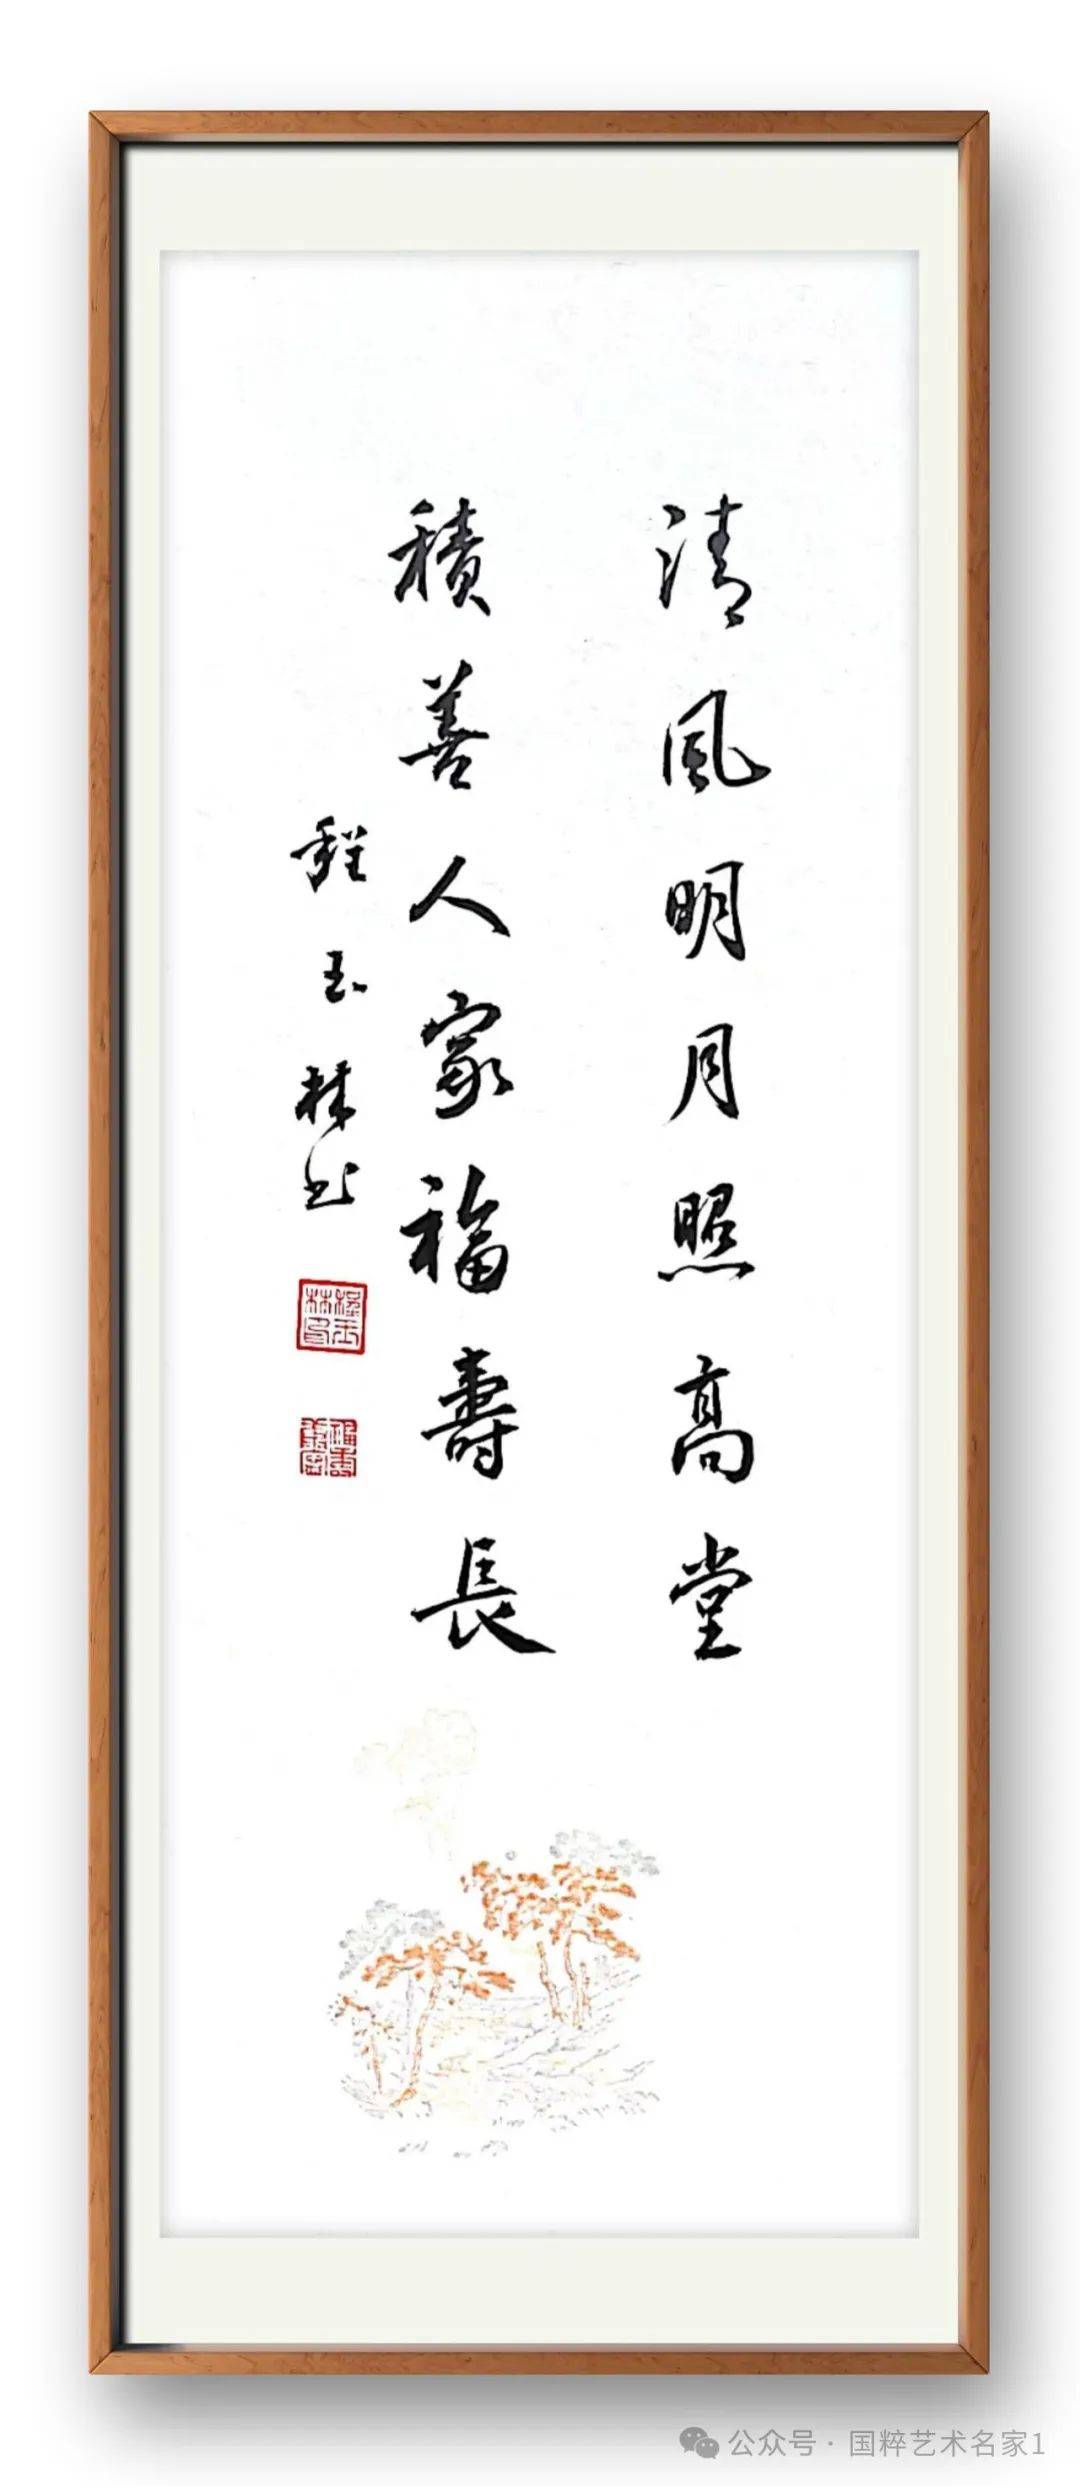 清風明月照高堂
積善人家福壽長
程玉林书
程玉林印
公众号·国粹艺术名家1